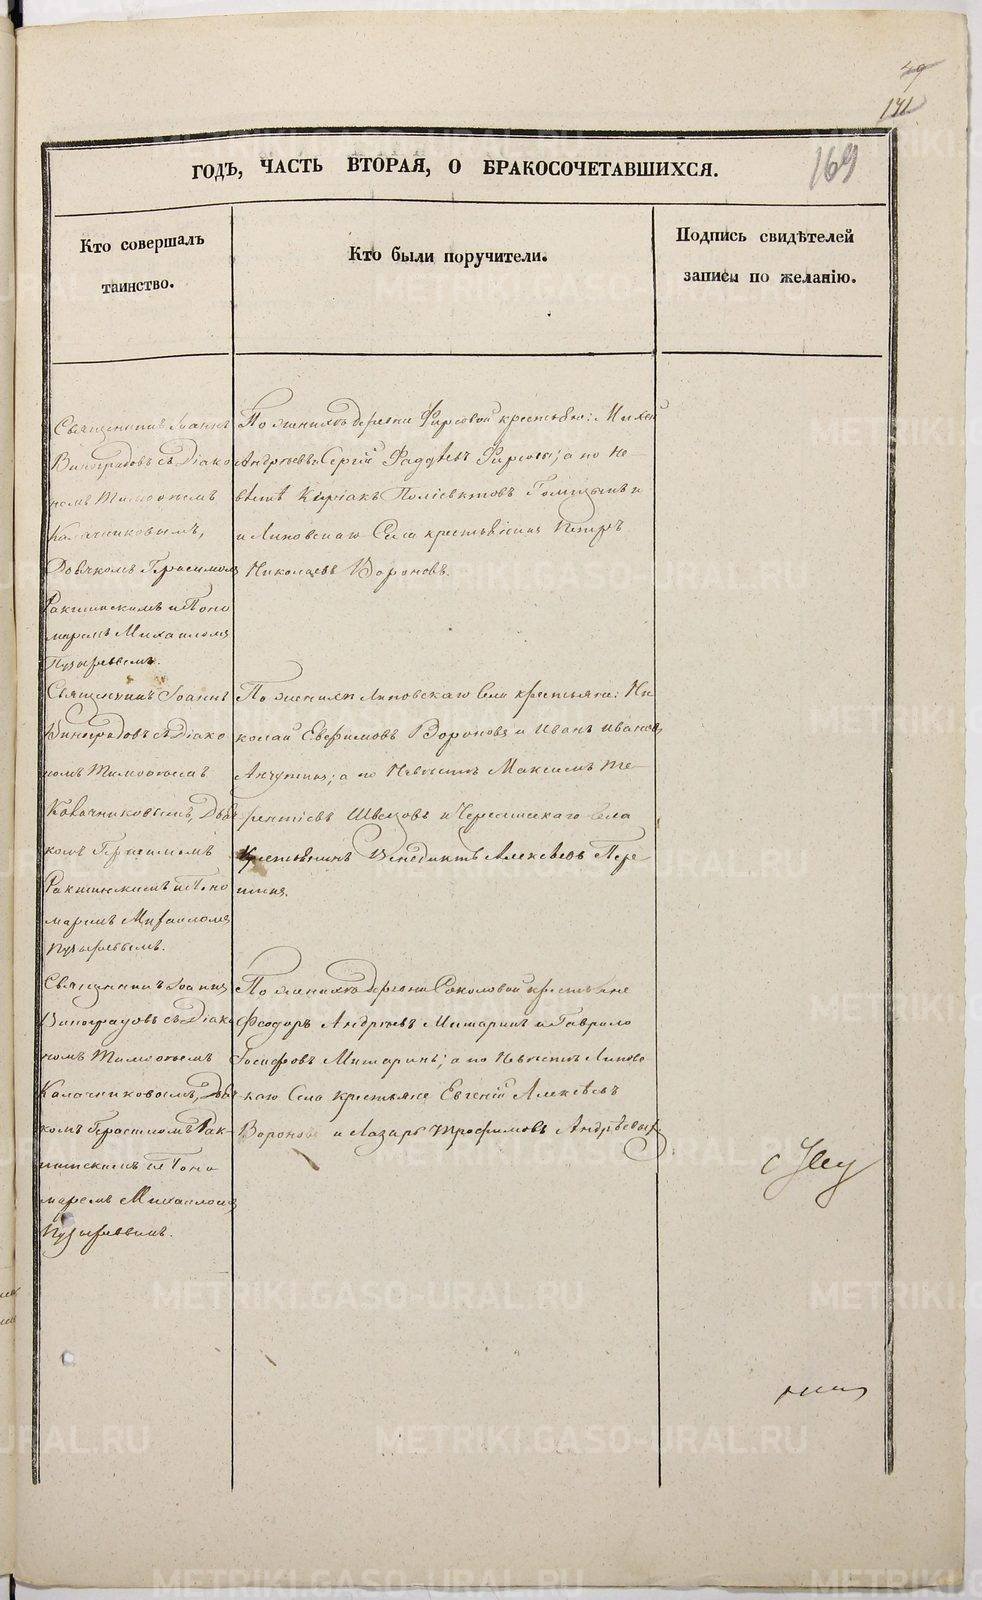 49
171
169
ГОДЪ, ЧАСТЬ ВТОРАЯ, О БРАКОСОЧЕТАВШИХСЯ.
Кто совершалъ
таинство.
Кто были поручители.
Подпись свидѣтелей
записи по желанію.
Священникъ Іоаннъ
Виноградовъ съ Діако
номъ Тимоѳеемъ
Калачниковымъ,
Дьячкомъ Герасимомъ
Ракитинскимъ и Поно
маремъ Михаиломъ
Пузыревымъ.
По женихѣ деревни Фирсовой крестьяне: Михей
Андреевъ и Сергій Фаддѣевъ Фирсовы; а по не-
вѣстѣ Киріакъ Поліевктовъ
и Липовскаго Села крестьянинъ Петръ
Николаевъ Вороновъ.
Священникъ Іоаннъ
Виноградовъ съ Діако
номъ Тимоѳеемъ
Калачниковымъ, Дьяч
комъ Герасимомъ
Ракитинскимъ и Поно
маремъ Михаиломъ
Пузыревымъ.
По женихѣ Липовскаго Села крестьяне: Ни
колай Евфимовъ Вороновъ и Иванъ Ивановъ
Анчугинъ; а по Невѣстѣ Максимъ Те-
рентіевъ Швецовъ и Черемисскаго Села
Крестьянинъ Венедиктъ Алексѣевъ Пер-
шинъ.
Священникъ Іоаннъ
Виноградовъ съ Діако
номъ Тимоѳеемъ
Калачниковымъ, Дьяч
комъ Герасимомъ Рак-
итинскимъ и Поно
маремъ Михаиломъ
Пузыревымъ.
По женихѣ деревни Соколовой крестьяне
Ѳеодоръ Андреевъ Митаринъ и Гаврило
Іосифовъ Митаринъ; а по Невѣстѣ Липовс
каго Села крестьяне Евгеній Алексѣевъ
Вороновъ и Лазарь Трофимовъ Андреевыхъ
METRIKI.GASO-URAL.RU